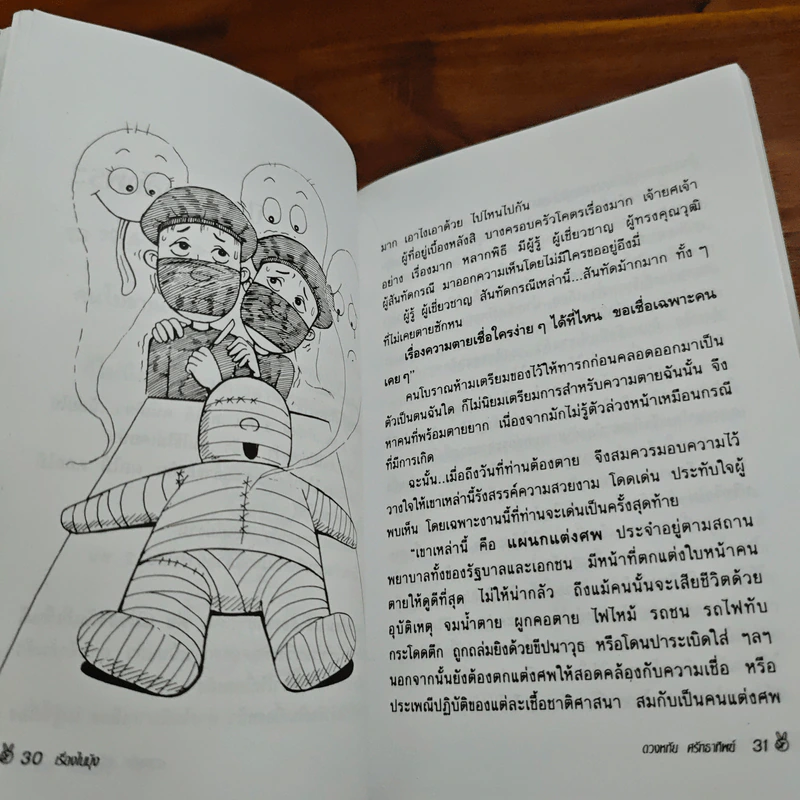 มาก เอาไงเอาด้วย ไปไหนไปกัน
ผู้ที่อยู่เบื้องหลังสิ บางครอบครัวโคตรเรื่องมาก เจ้ายศเจ้า
อย่าง เรื่องมาก หลากพิธี มีผู้รู้ ผู้เชี่ยวชาญ ผู้ทรงคุณวุฒิ
ผู้สันทัดกรณี มาออกความเห็นโดยไม่มีใครขออยู่อึงมี่
ผู้รู้ ผู้เชี่ยวชาญ สันทัดกรณีเหล่านี้...สันทัดม้ากมาก ทั้ง ๆ
ที่ไม่เคยตายซักหน
เรื่องความตายเชื่อใครง่าย ๆ ได้ที่ไหน ขอเชื่อเฉพาะคน
เคย ๆ"
คนโบราณห้ามเตรียมของไว้ให้ทารกก่อนคลอดออกมาเป็น
ตัวเป็นตนฉันใด ก็ไม่นิยมเตรียมการสำหรับความตายฉันนั้น จึง
หาคนที่พร้อมตายยาก เนื่องจากมักไม่รู้ตัวล่วงหน้าเหมือนกรณี
ที่มีการเกิด
ฉะนั้น..เมื่อถึงวันที่ท่านต้องตาย จึงสมควรมอบความไว้
วางใจให้เขาเหล่านี้รังสรรค์ความสวยงาม โดดเด่น ประทับใจผู้
พบเห็น โดยเฉพาะงานนี้ที่ท่านจะเด่นเป็นครั้งสุดท้าย
"เขาเหล่านี้ คือ แผนกแต่งศพ ประจำอยู่ตามสถาน
พยาบาลทั้งของรัฐบาลและเอกชน มีหน้าที่ตกแต่งใบหน้าคน
ตายให้ดูดีที่สุด ไม่ให้น่ากลัว ถึงแม้คนนั้นจะเสียชีวิตด้วย
อุบัติเหตุ จมน้ำตาย ผูกคอตาย ไฟไหม้ รถชน รถไฟทับ
กระโดดตึก ถูกถล่มยิงด้วยขีปนาวุธ หรือโดนปาระเบิดใส่ ฯลฯ
นอกจากนั้นยังต้องตกแต่งศพให้สอดคล้องกับความเชื่อ หรือ
ประเพณีปฏิบัติของแต่ละเชื้อชาติศาสนา สมกับเป็นคนแต่งศพ
30 เรื่องในมุ้ง
ดวงหทัย ศรัทธาทิพย์ 31